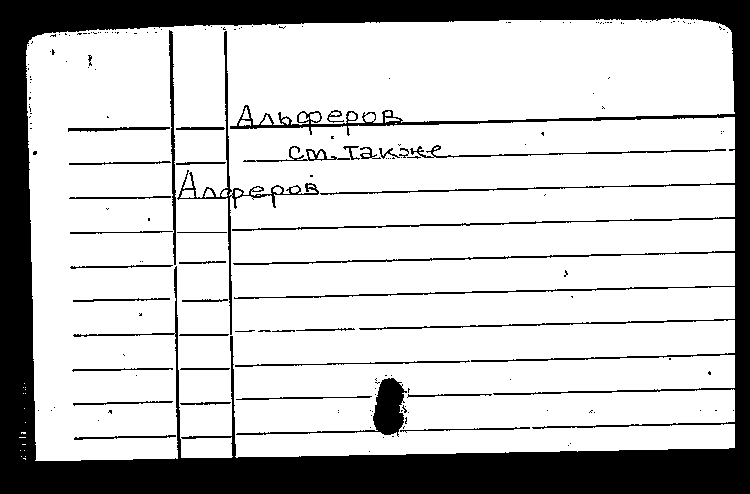 Альферов
см. также
Алферов